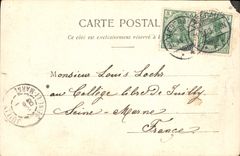 CARTE POSTAL
Ce côté est exclusivement réservé à l
Monsieur Louis Lochr.
au Collège libre de Juilly
Seine-Marne
France